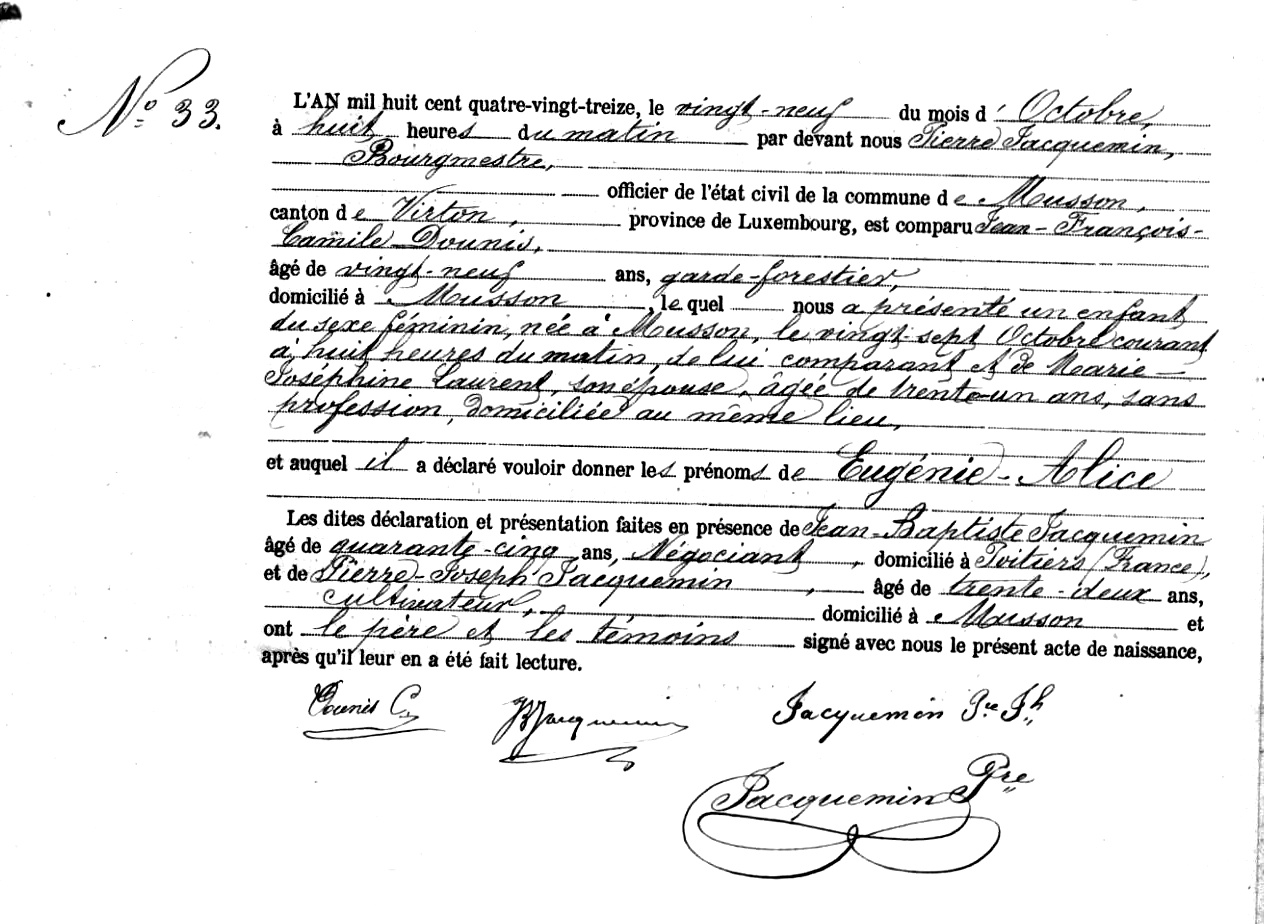 N° 33.
L'AN mil huit cent quatre-vingt-treize, le vingt-neuf du mois d' Octobre,
à huit heures du matin par devant nous Pierre Jacquemin,
Bourgmestre,
officier de l'état civil de la commune de Musson,
canton de Virton, province de Luxembourg, est comparu Jean-François-
Camile Dounis,
âgé de vingt-neuf ans, garde-forestier,
domicilié à Musson, lequel nous a présenté un enfant
du sexe féminin, née à Musson, le vingt-sept Octobre courant
à huit heures du matin, de lui comparant et de Marie-
Joséphine Laurent, son épouse, âgée de trente-un ans, sans
profession, domiciliée au même lieu,
et auquel il a déclaré vouloir donner les prénoms de Eugénie-Alice
Les dites déclaration et présentation faites en présence de Jean-Baptiste Jacquemin
âgé de quarante-cinq ans, Négociant, domicilié à Poitiers (France),
et de Pierre-Joseph Jacquemin, âgé de trente-deux ans,
cultivateur, domicilié à Musson et
ont le père et les témoins signé avec nous le présent acte de naissance,
après qu'il leur en a été fait lecture.
Dounis C. JBJacquemin Jacquemin Pre Jh
Jacquemin Pre